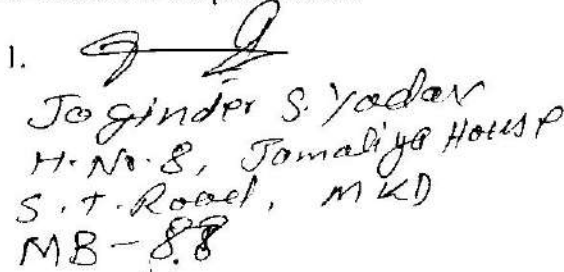 1.
Joginder S. Yadav
H. No. 8, Jamaliya House
S. T. Road, MKD
MB - 88